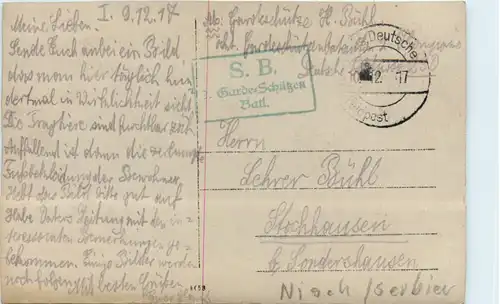 I. 9.12.17
Meine Lieben.
Sende Euch anbei ein Bild
das man hier täglich hun-
dertmal in Wirklichkeit sieht.
Die Tragtiere sind furchtbar zäh.
Auffallend ist dann die
Fußbekleidung der Bewohner.
Hebt das Bild bitte gut auf
Habe Vaters Zeitung mit den in-
teressanten Bemerkungen be-
kommen. Einige Bilder werden
noch folgen. Mit besten Grüßen
Abs. Gardeschütze H. Bühl
Deutsche
S. B.
Garde-Schützen
Batl.
Deutsche
12. 17
Feldpost
Herrn
Lehrer Bühl
Stockhausen
b. Sondershausen
Nisch/Serbien